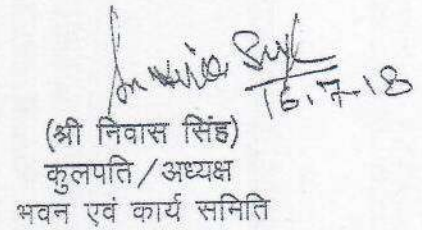 16.7.18
(श्री निवास सिंह)
कुलपति/अध्यक्ष
भवन एवं कार्य समिति